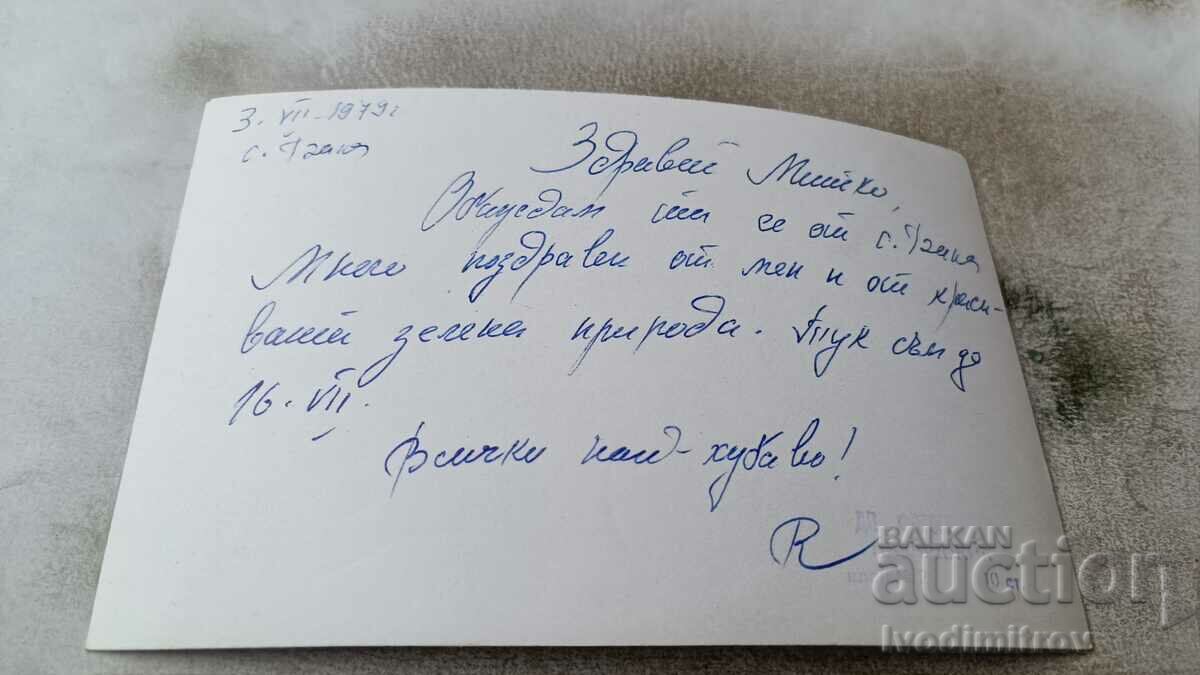 3. VII - 1979 г
с.
Здравей Митко,
Обаждам ти се от с.
Много поздрави от мен и от краси-
вата зелена природа. Тук съм до
16. VII.
Всичко най-хубаво!
R
10 ст
BALKAN
auction
Ivodimitrov